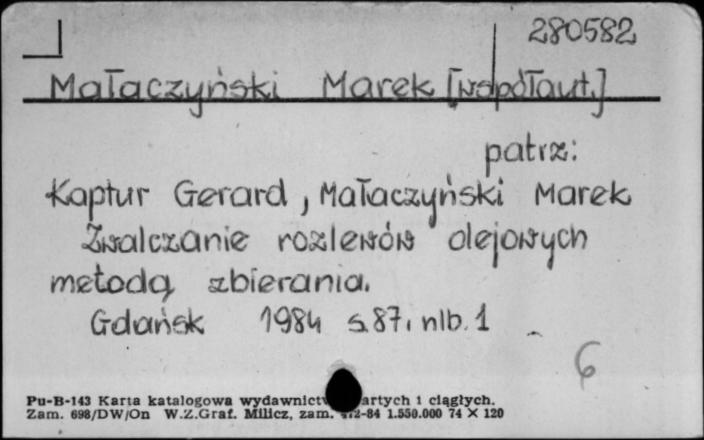 280582
Małaczyński Marek [współaut.]
patrz:
Kaptur Gerard, Małaczyński Marek
Zwalczanie rozlewów olejowych
metodą zbierania.
Gdańsk 1984 s.87, nlb. 1
6
Pu-B-143 Karta katalogowa wydawnictw artych i ciągłych.
Zam. 698/DW/On W.Z.Graf. Milicz, zam. 2-84 1.550.000 74 × 120